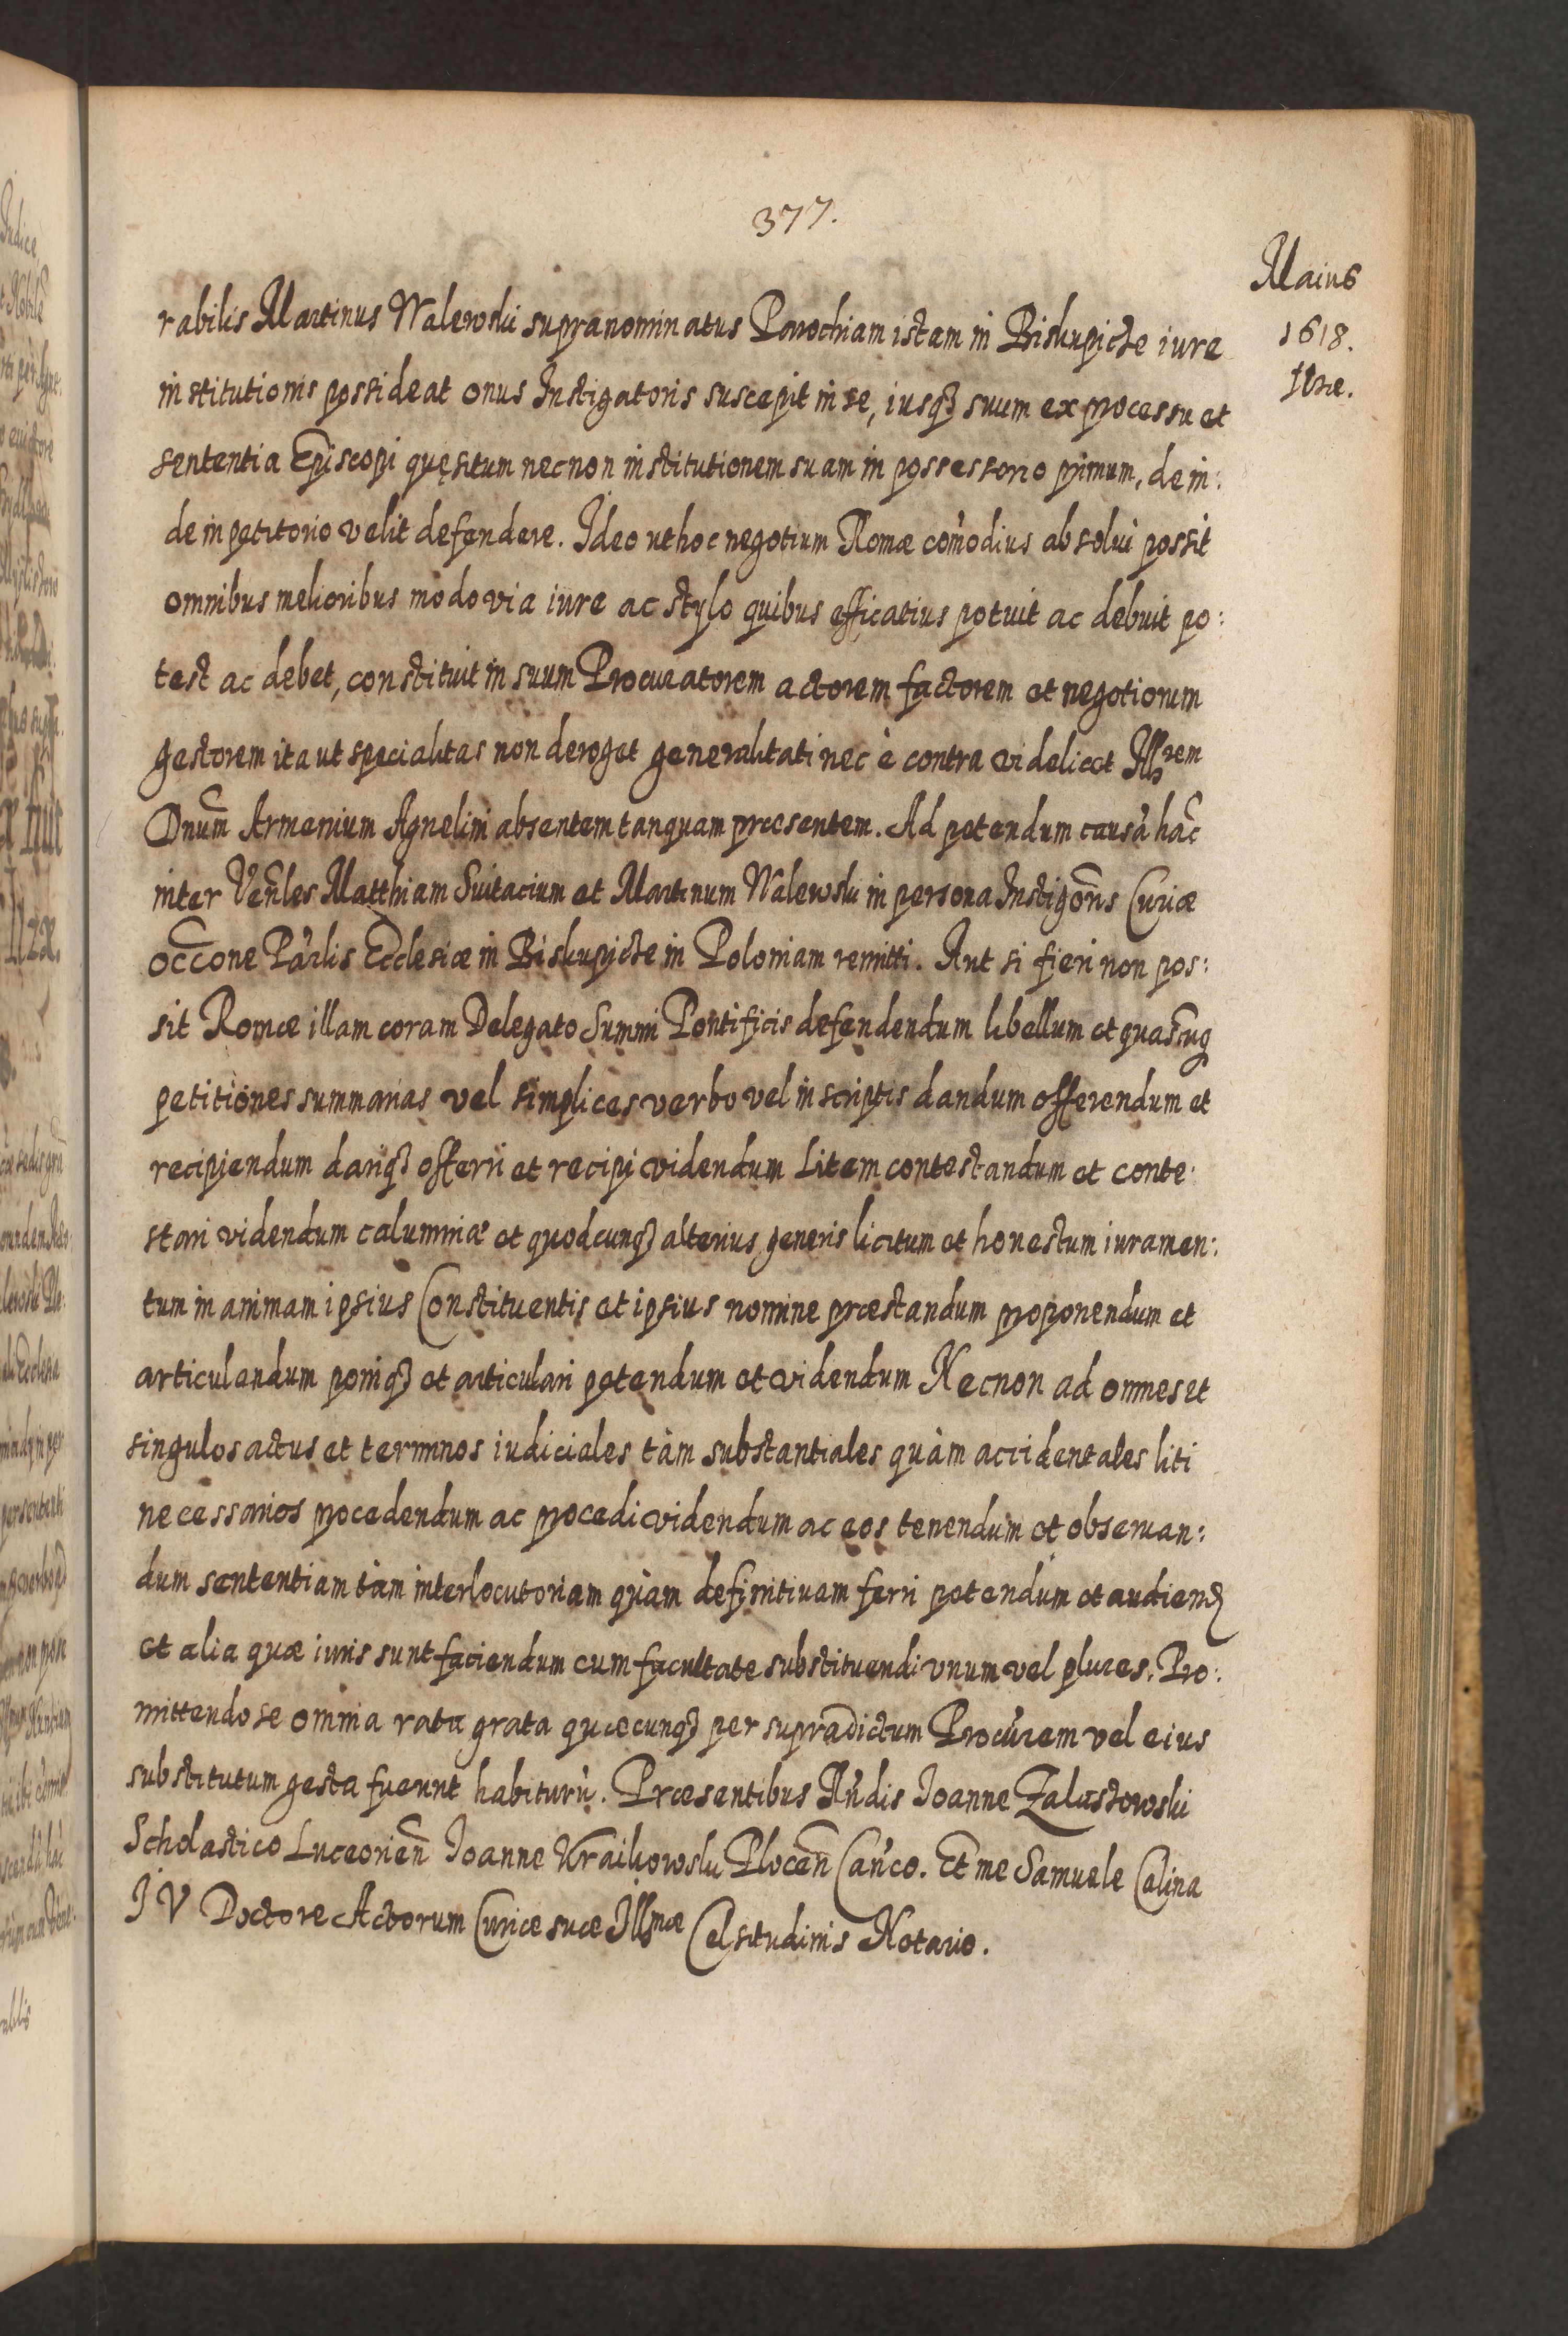 377.
Maius
1618.
rabilis Martinus Walewski supranominatus Parochiam istam in Biskupicze iure
institutionis possideat onus Instigatoris suscepit in se, iusq3 suum ex processu et
sententia Episcopi quęsitum necnon institutionem suam in possessorio primum, dein:
de in petitorio velit defendere. Ideo ut hoc negotium Romæ com̄odius absolui possit
omnibus melioribus modo via iure ac stylo quibus efficatius potuit ac debuit po:
test ac debet, constituit in suum Procuratorem actorem factorem et negotiorum
gestorem ita ut specialitas non deroget generalitati nec è contra videlicet Illrem
Dnum Armenium Agnelini absentem tanquam præsentem. Ad petendum causā hanc̄
inter Venles Matthiam Suitacium et Martinum Walewski in persona Instigoris Curiæ
occone Parlis Ecclesiæ in Biskupicze in Poloniam remitti. Aut si fieri non pos:
sit Romæ illam coram Delegato Summi Pontificis defendendum libellum et quascunq
petitiones summarias vel simplices verbo vel in scriptis dandum offerendum et
recipiendum dariq3 offerri et recipi videndum Litem contestandum et conte:
stari videndum calumniæ et quodcunq3 alterius generis licitum et honestum iuramen:
tum in animam ipsius Constituentis et ipsius nomine præstandum proponendum et
articulandum poniq3 et articulari petendum et videndum Necnon ad omnes et
singulos actus et terminos iudiciales tàm substantiales quàm accidentales liti
necessarios procedendum ac procedi videndum ac eos tenendum et obseruan:
dum sententiam tàm interlocutoriam quàm definitiuam ferri petendum et audiend
et alia quæ iuris sunt faciendum cum facultate substituendi vnum vel plures. Pro:
mittendo se omnia rata grata quæcunq3 per supradictum Procūrem vel eius
substitutum gesta fuerint habiturū. Præsentibus Rn̄dis Joanne Zalustowski
Scholastico Luceorien̄ Joanne Kraikowski Plocen̄ Can̄co. Et me Samuele Calina
J V Doctore Actorum Curiæ suæ Illmæ Celsitudinis Notario.